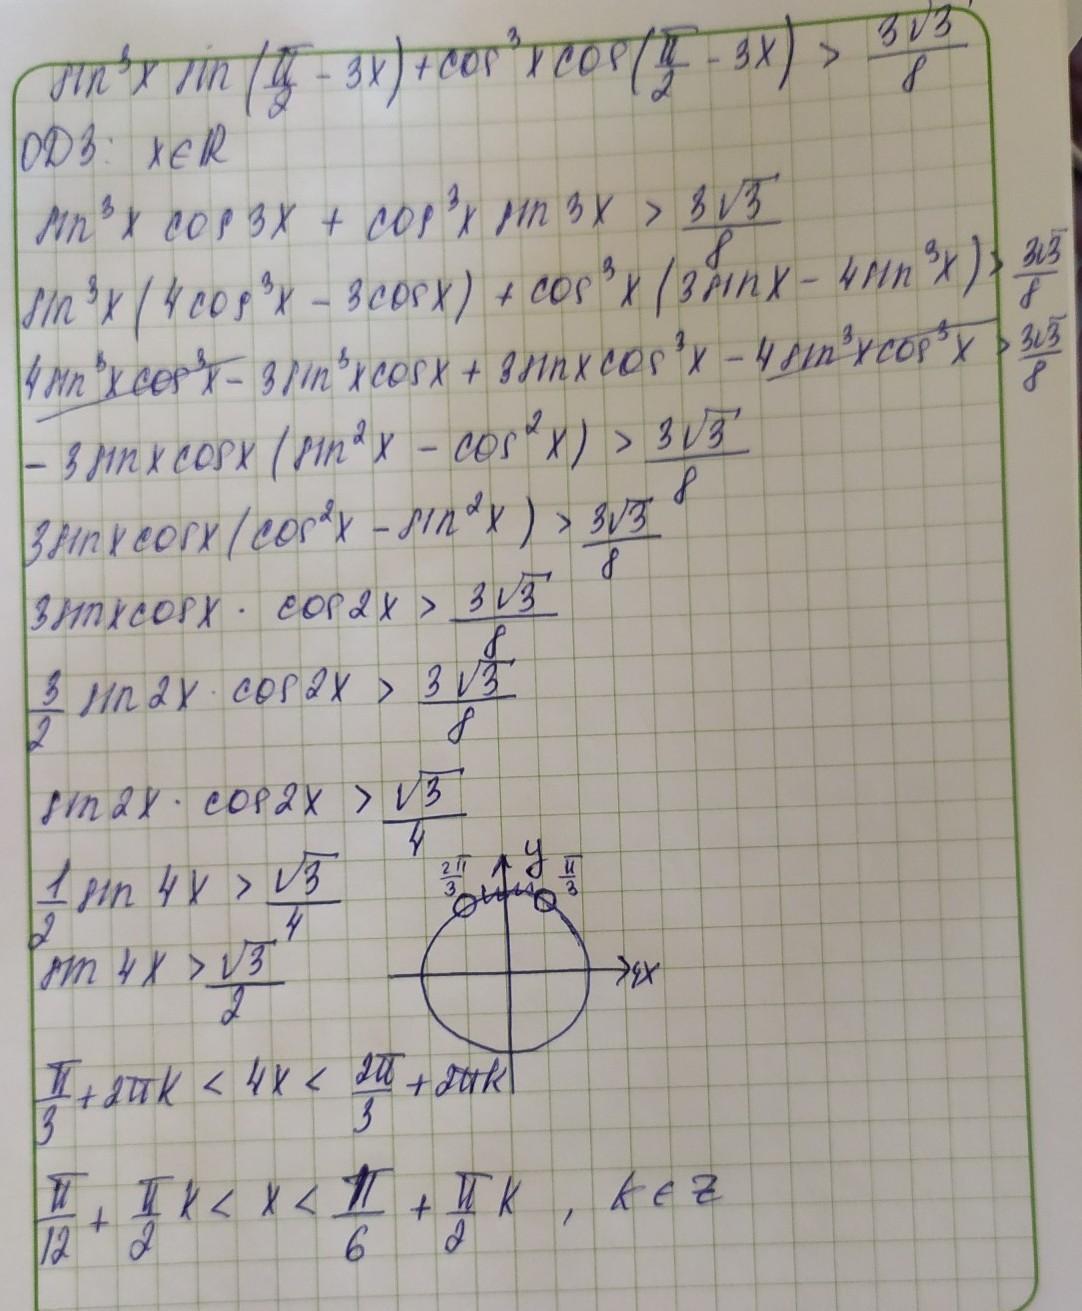 sin³x sin(π/2 - 3x) + cos³x cos(π/2 - 3x) > 3√3/8
ОДЗ: x∈R
sin³x cos3x + cos³x sin3x > 3√3/8
sin³x(4cos³x - 3cosx) + cos³x(3sinx - 4sin³x) > 3√3/8
4sin³xcos³x - 3sin³xcosx + 3sinxcos³x - 4sin³xcos³x > 3√3/8
- 3sinxcosx(sin²x - cos²x) > 3√3/8
3sinxcosx(cos²x - sin²x) > 3√3/8
3sinxcosx · cos2x > 3√3/8
3/2 sin2x · cos2x > 3√3/8
sin2x · cos2x > √3/4
1/2 sin4x > √3/4
2π/3 y π/3
sin4x > √3/2
4x
π/3 + 2πk < 4x < 2π/3 + 2πk
π/12 + π/2 k < x < π/6 + π/2 k , k∈Z